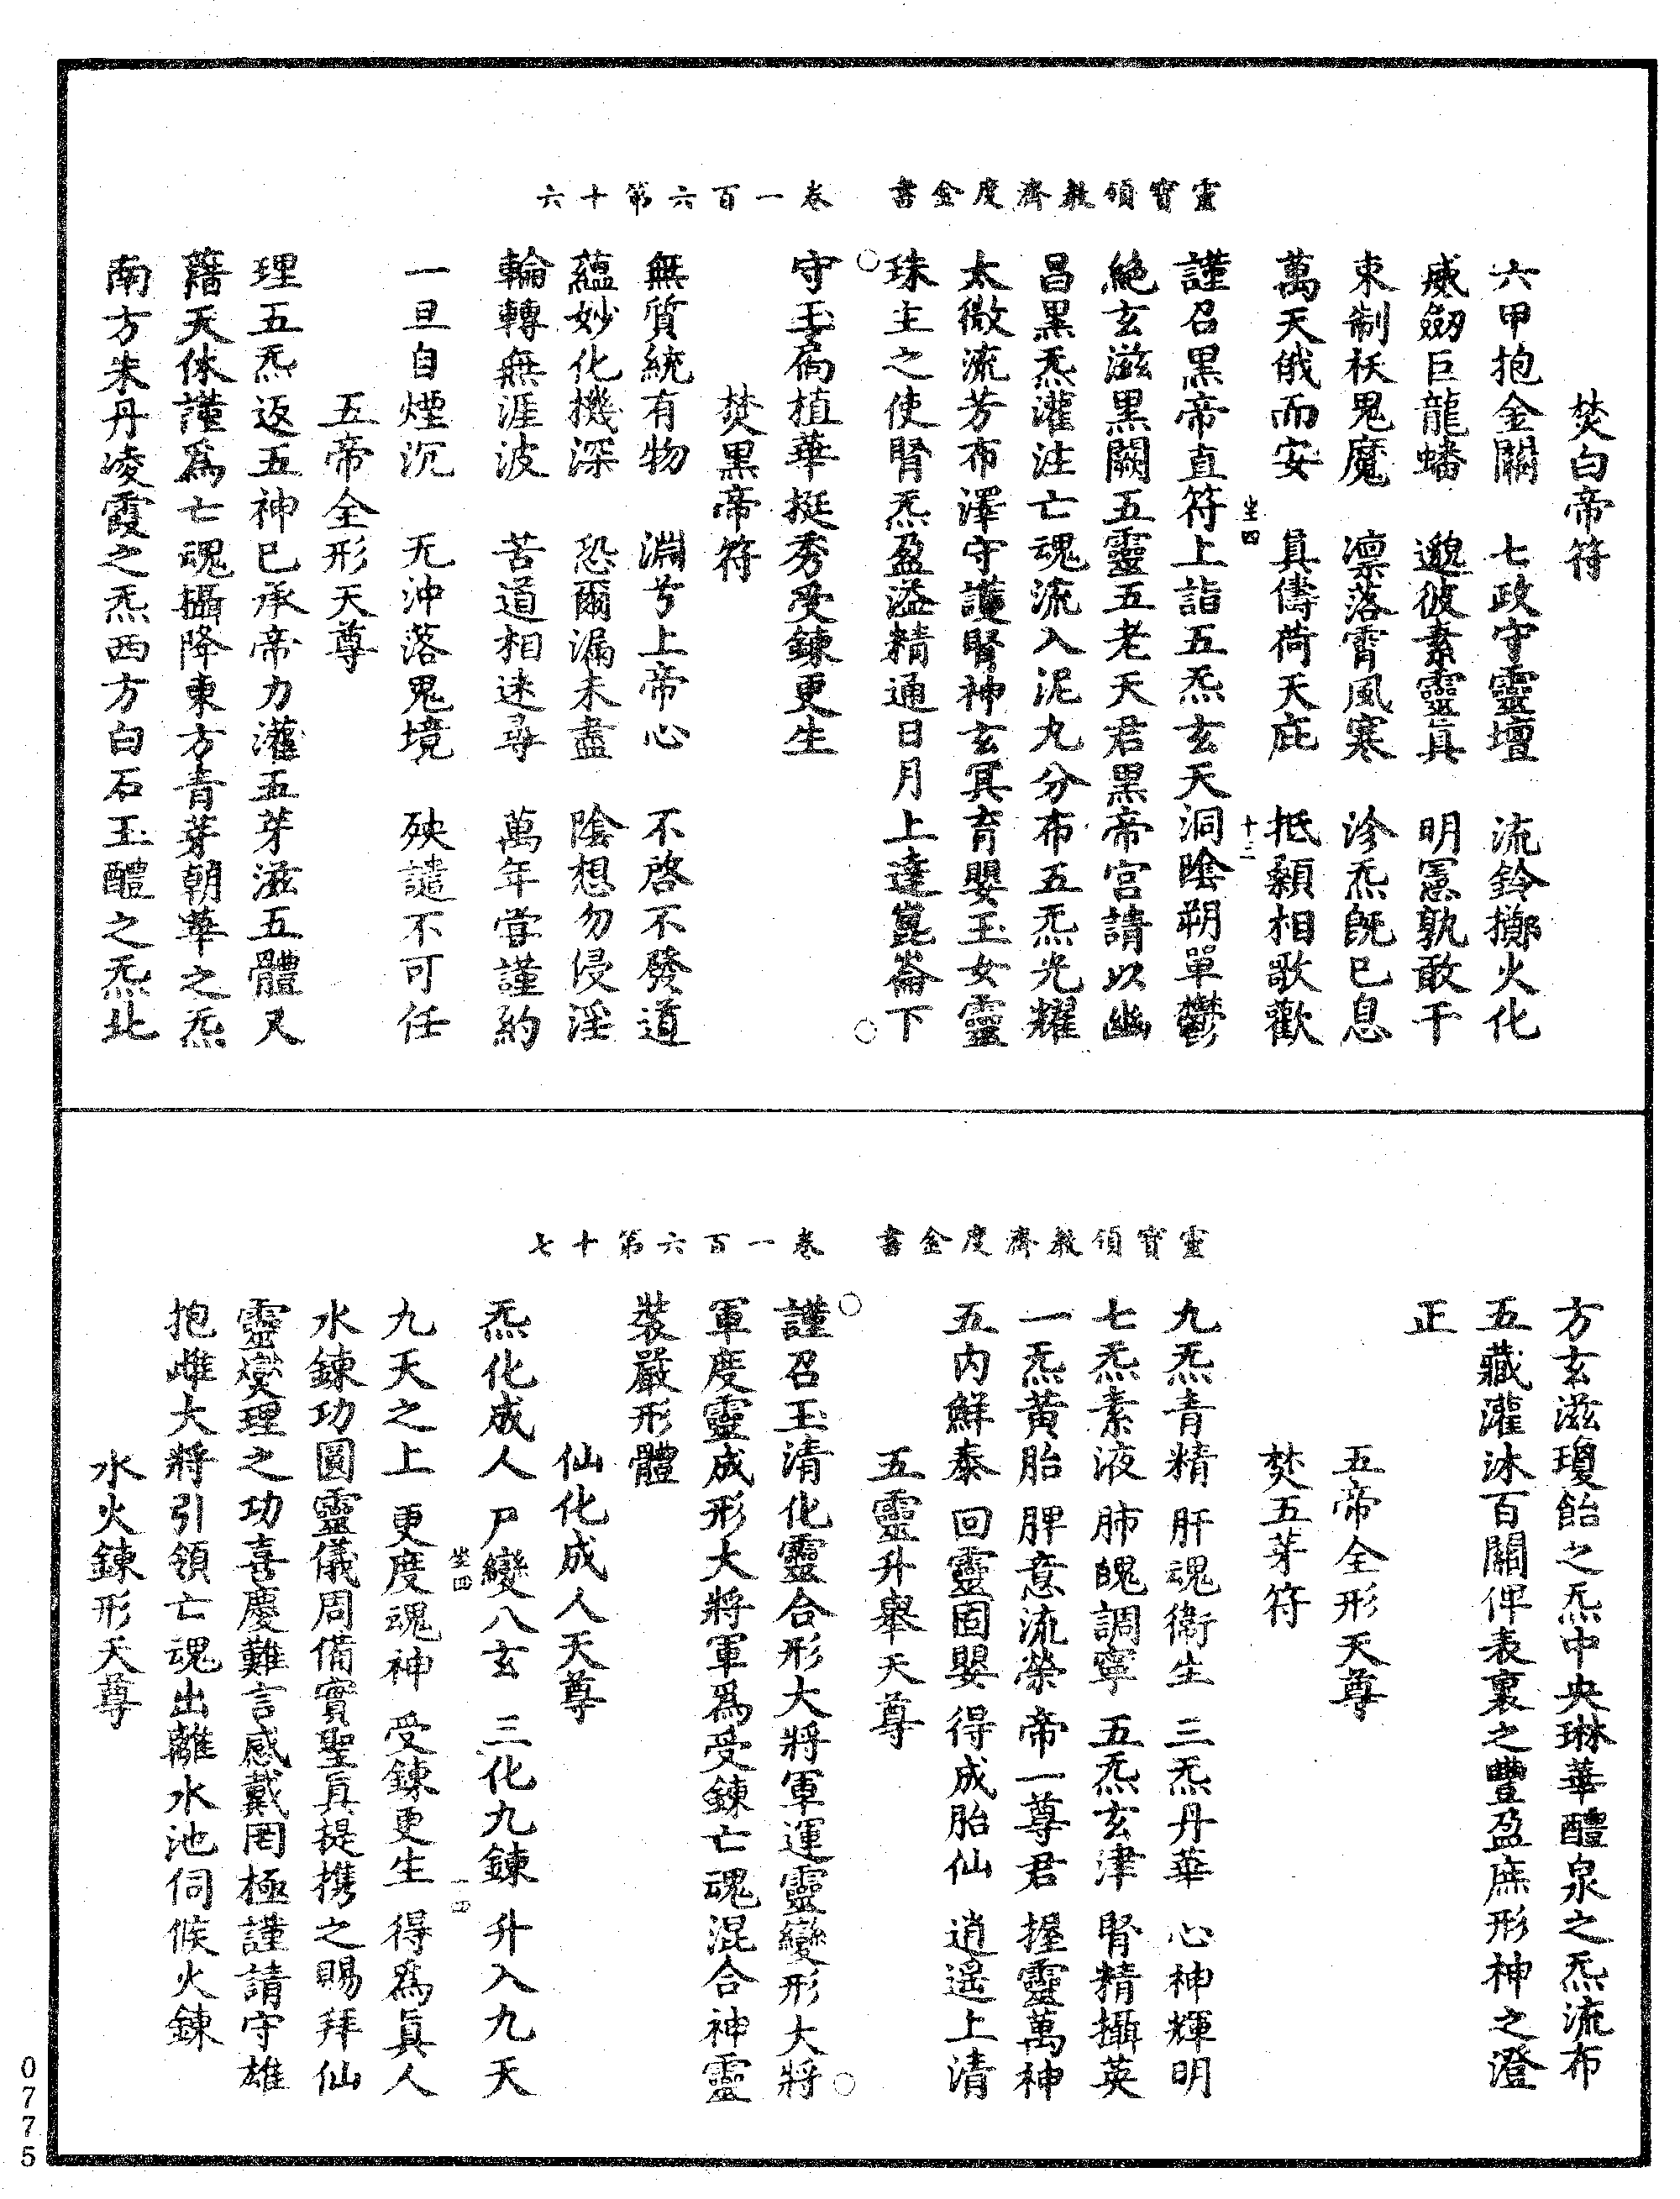 靈寶領教濟度金書　卷一百六第十六
焚白帝符
六甲抱金關　七政守靈壇　流鈴擲火化
威劒巨龍蟠　邈彼素靈眞　明憲孰敢干
束制袄鬼魔　凛落霄風寒　沴炁旣已息
萬天俄而安　眞儔荷天庇　抵顙相歌歡
坐四　十三
謹召黑帝直符上詣五炁玄天洞陰朔單鬱
絶玄滋黑闕五靈五老天君黑帝宫請以幽
昌黑炁灌注亡魂流入泥丸分布五炁光耀
太微流芳布澤守護腎神玄冥育嬰玉女靈
珠主之使腎炁盈溢精通日月上達崑崙下
守玉扄植華挺秀受鍊更生
焚黑帝符
無質統有物　淵兮上帝心　不啓不發道
藴妙化機深　恐爾漏未盡　隂想勿侵淫
輪轉無涯波　苦道相迷尋　萬年當謹約
一旦自煙沉　无沖落鬼境　殃譴不可任
五帝全形天尊
理五炁返五神已承帝力灌五芽滋五體又
藉天休謹爲亡魂攝降東方青芽朝華之炁
南方朱丹凌霞之炁西方白石玉醴之炁北
靈寶領教濟度金書　卷一百六第十七
方玄滋瓊飴之炁中央琳華醴泉之炁流布
五藏灌沐百關俾表裏之豐盈庶形神之澄
正
五帝全形天尊
焚五芽符
九炁青精　肝魂衛生　三炁丹華　心神輝明
七炁素液　肺魄調寧　五炁玄津　腎精攝英
一炁黄胎　脾意流榮　帝一尊君　握靈萬神
五内鮮泰　回靈固嬰　得成胎仙　逍遥上清
五靈升舉天尊
謹召玉清化靈合形大將軍運靈變形大將
軍度靈成形大將軍爲受鍊亡魂混合神靈
裝嚴形體
仙化成人天尊
炁化成人　尸變八玄　三化九鍊　升入九天
九天之上　更度魂神　受鍊更生　得爲眞人
坐四　一四
水鍊功圓靈儀周備實聖眞提携之賜拜仙
靈爕理之功喜慶難言感戴罔極謹請守雄
抱雌大將引領亡魂出離水池伺候火鍊
水火鍊形天尊
0775